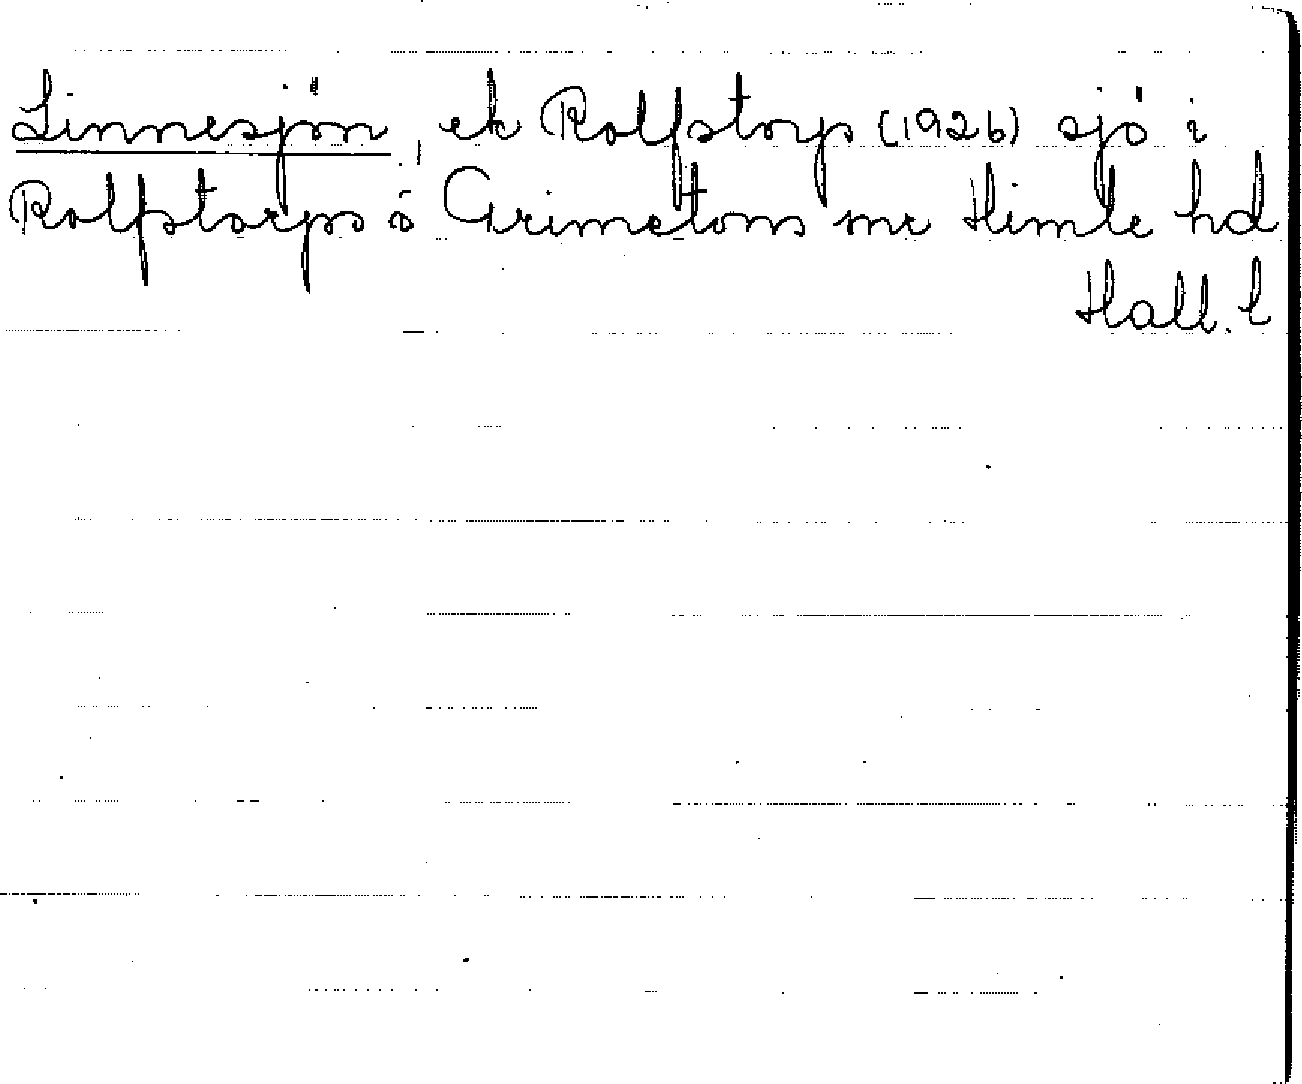 Linnesjön, ek Rolfstorp (1926) sjö i
Rolfstorps o Grimetons snr Himle hd
Hall. l